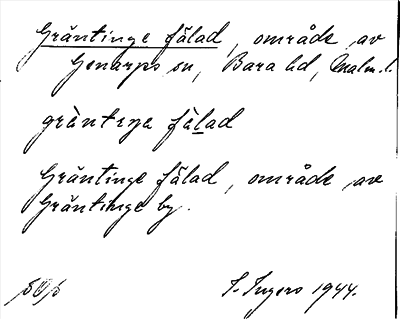 Gräntinge fälad, område av
Genarps sn, Bara hd, Malm. l.
gräntıŋa fä̀lad
Gräntinge fälad, område av
Gräntinge by.
I. Ingers 1944.